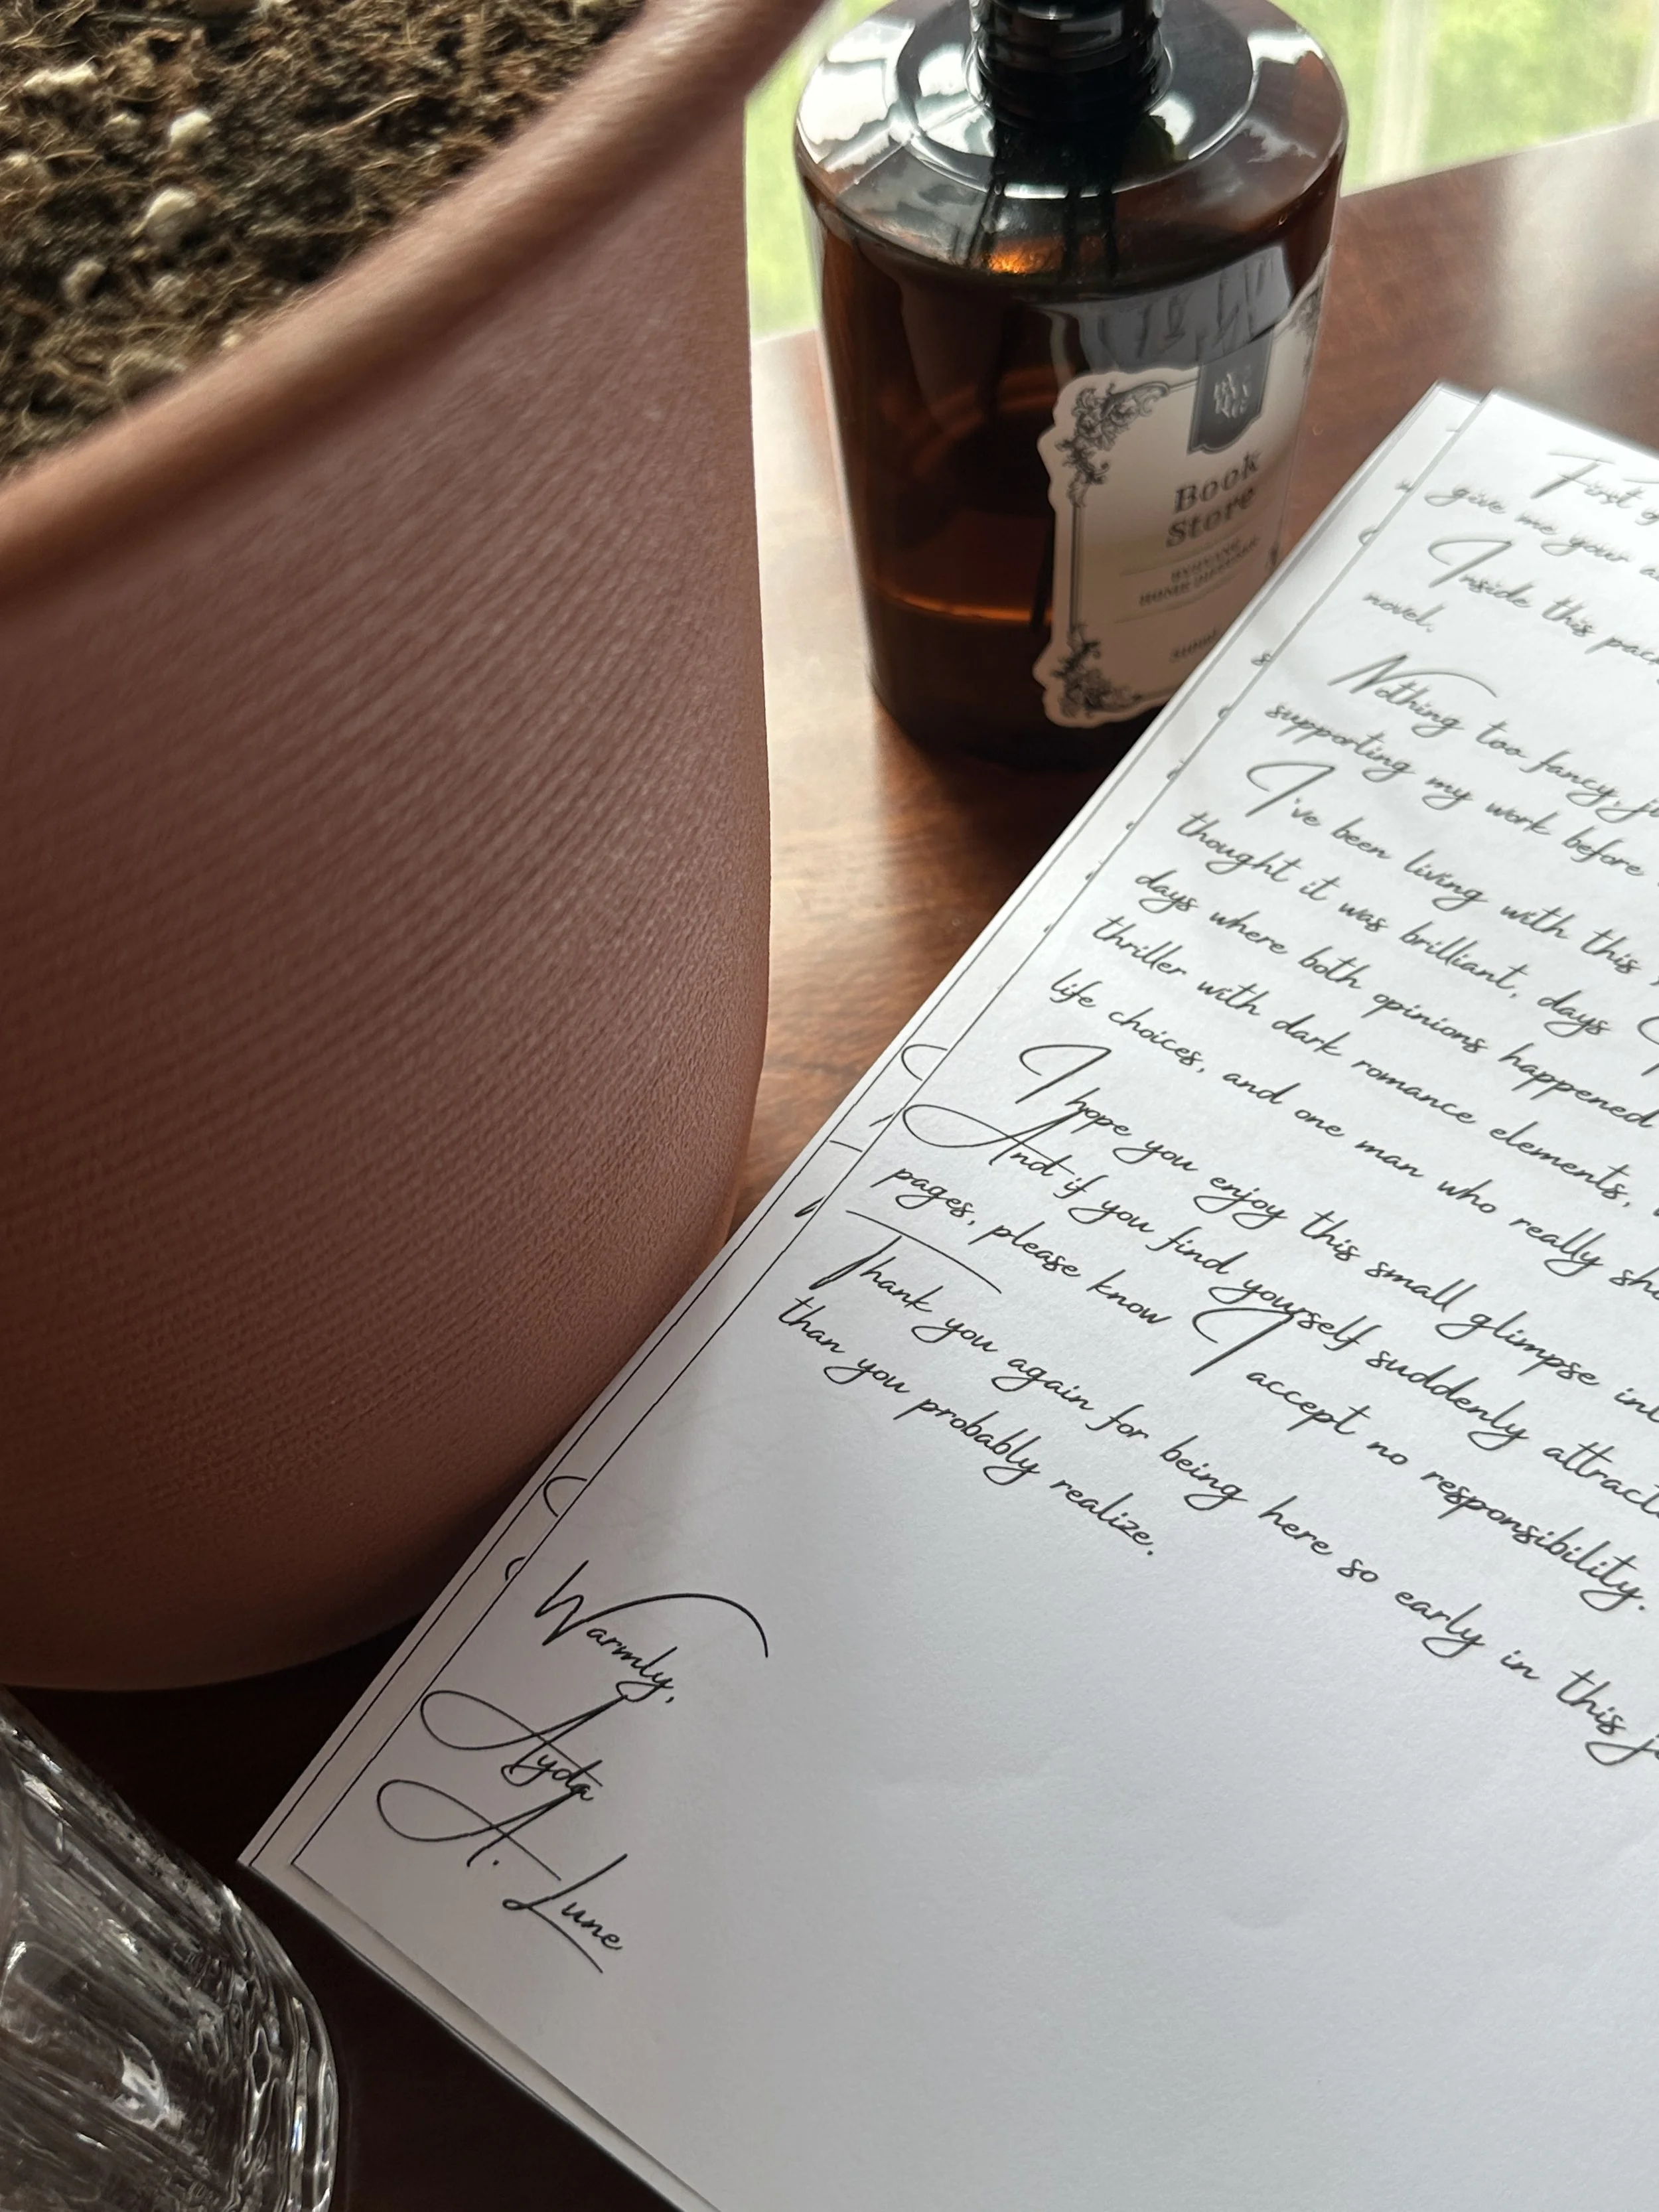 Book
Store
HOME DIFFUSER
First
give me your
Inside this
novel.
Nothing too fancy,
supporting my work before
I've been living with this
thought it was brilliant, days
days where both opinions happened
thriller with dark romance elements,
life choices, and one man who really
I hope you enjoy this small glimpse
And if you find yourself suddenly
pages, please know I accept no responsibility.
Thank you again for being here so early in this
than you probably realize.
Warmly,
Ayda
A. Lune